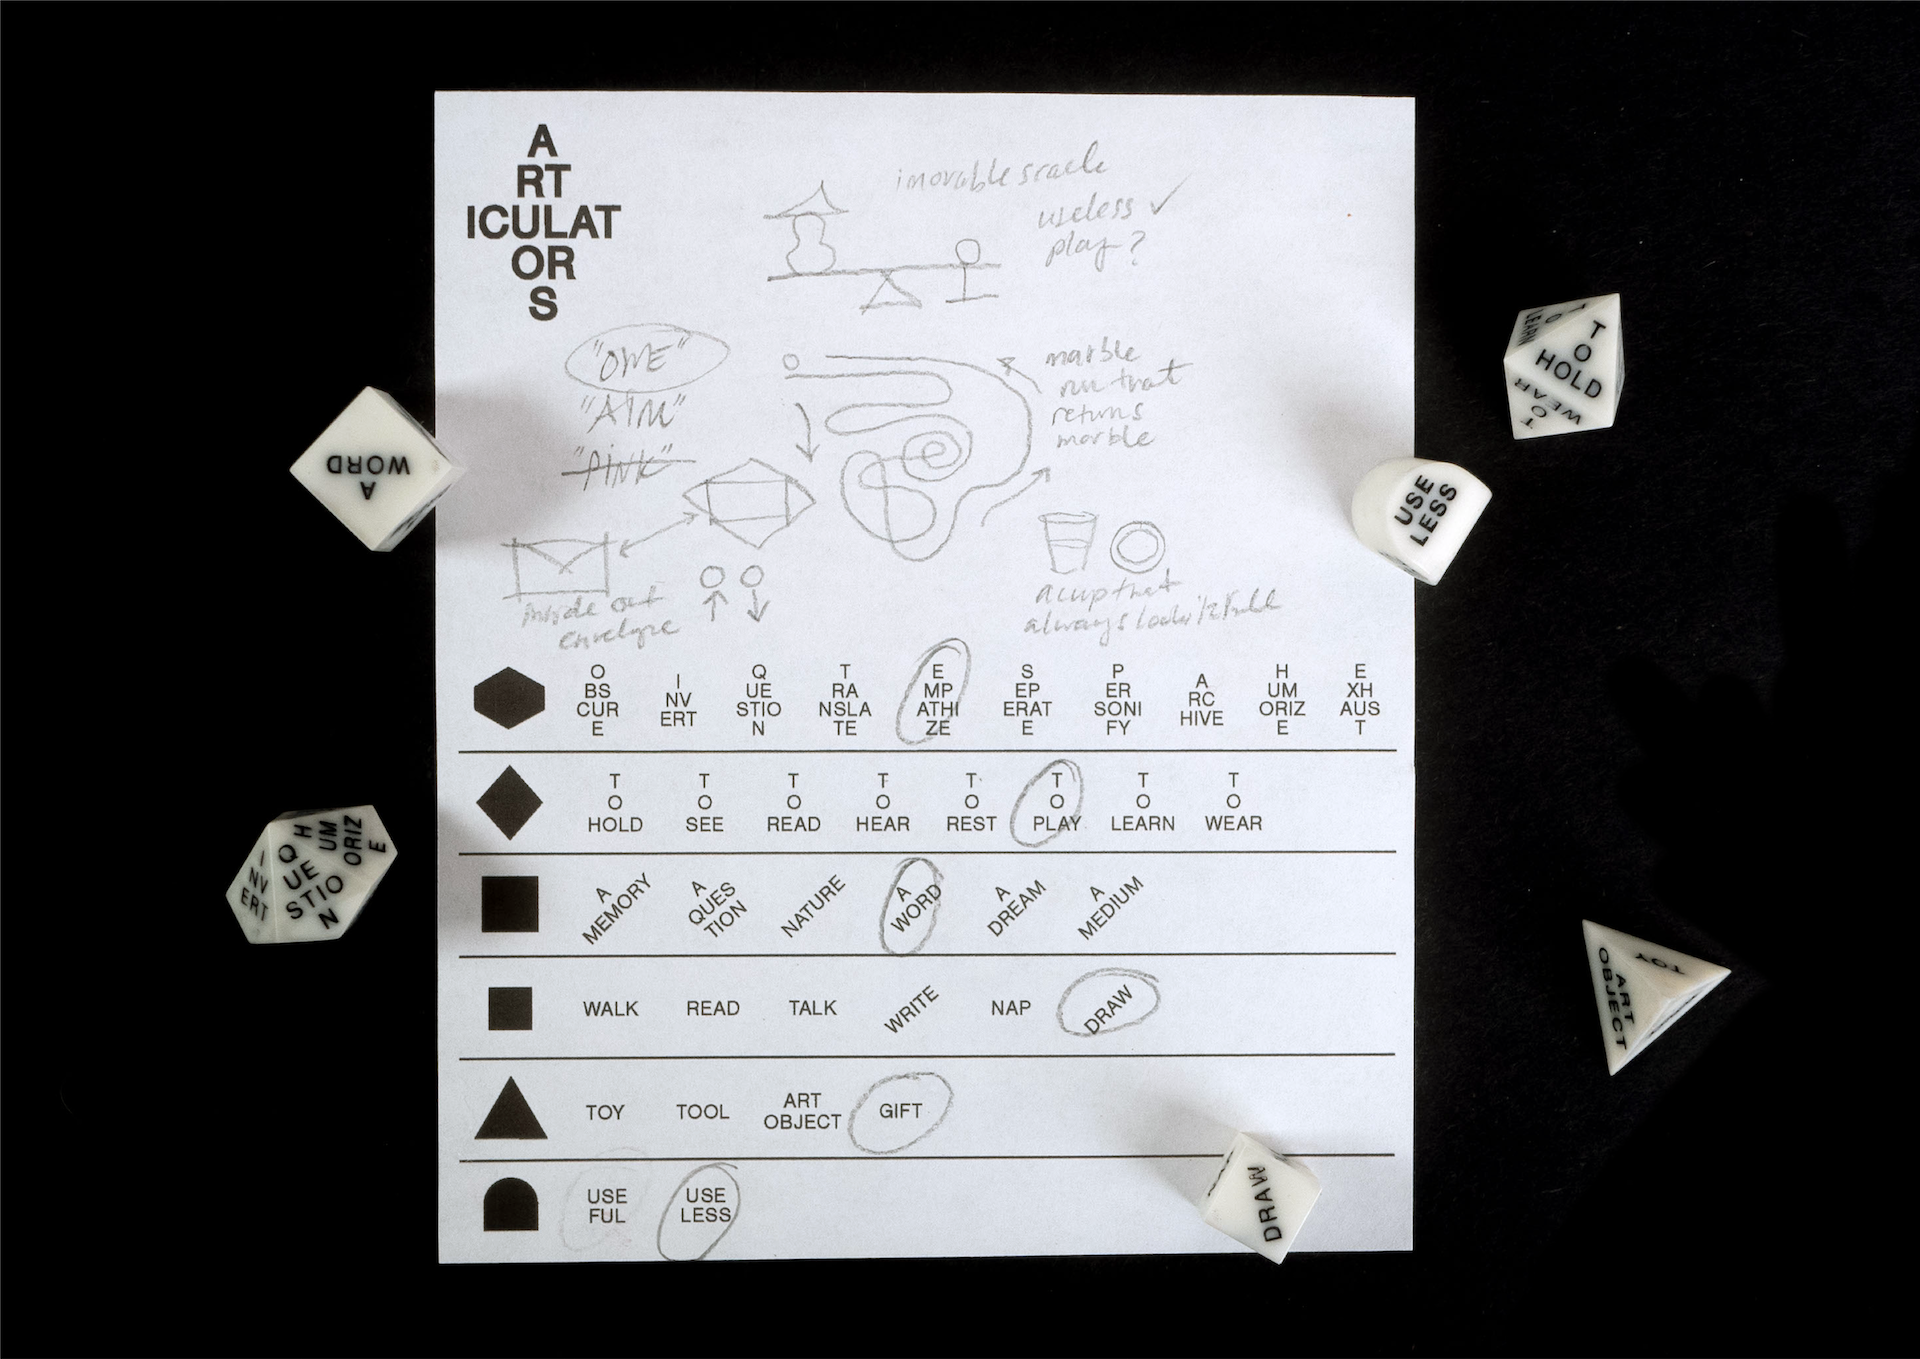 A
RT
ICULAT
OR
S
imovable scacle
useless ✓
play?
"OWE"
"AIM"
"PINK"
marble
run that
returns
marble
inside out
envelope
a cup that
always looks 1/2 full
O
BS
CUR
E
I
NV
ERT
Q
UE
STIO
N
T
RA
NSLA
TE
E
MP
ATHI
ZE
S
EP
ERAT
E
P
ER
SONI
FY
A
RC
HIVE
H
UM
ORIZ
E
E
XH
AUS
T
T
O
HOLD
T
O
SEE
T
O
READ
T
O
HEAR
T
O
REST
T
O
PLAY
T
O
LEARN
T
O
WEAR
A
MEMORY
A
QUES
TION
NATURE
A
WORD
A
DREAM
A
MEDIUM
WALK
READ
TALK
WRITE
NAP
DRAW
TOY
TOOL
ART
OBJECT
GIFT
USE
FUL
USE
LESS
A
WORD
I
NV
ERT
Q
UE
STIO
N
H
UM
ORIZ
E
T
O
LEARN
T
O
HOLD
TO
WEAR
USE
LESS
TOY
ART
OBJECT
DRAW